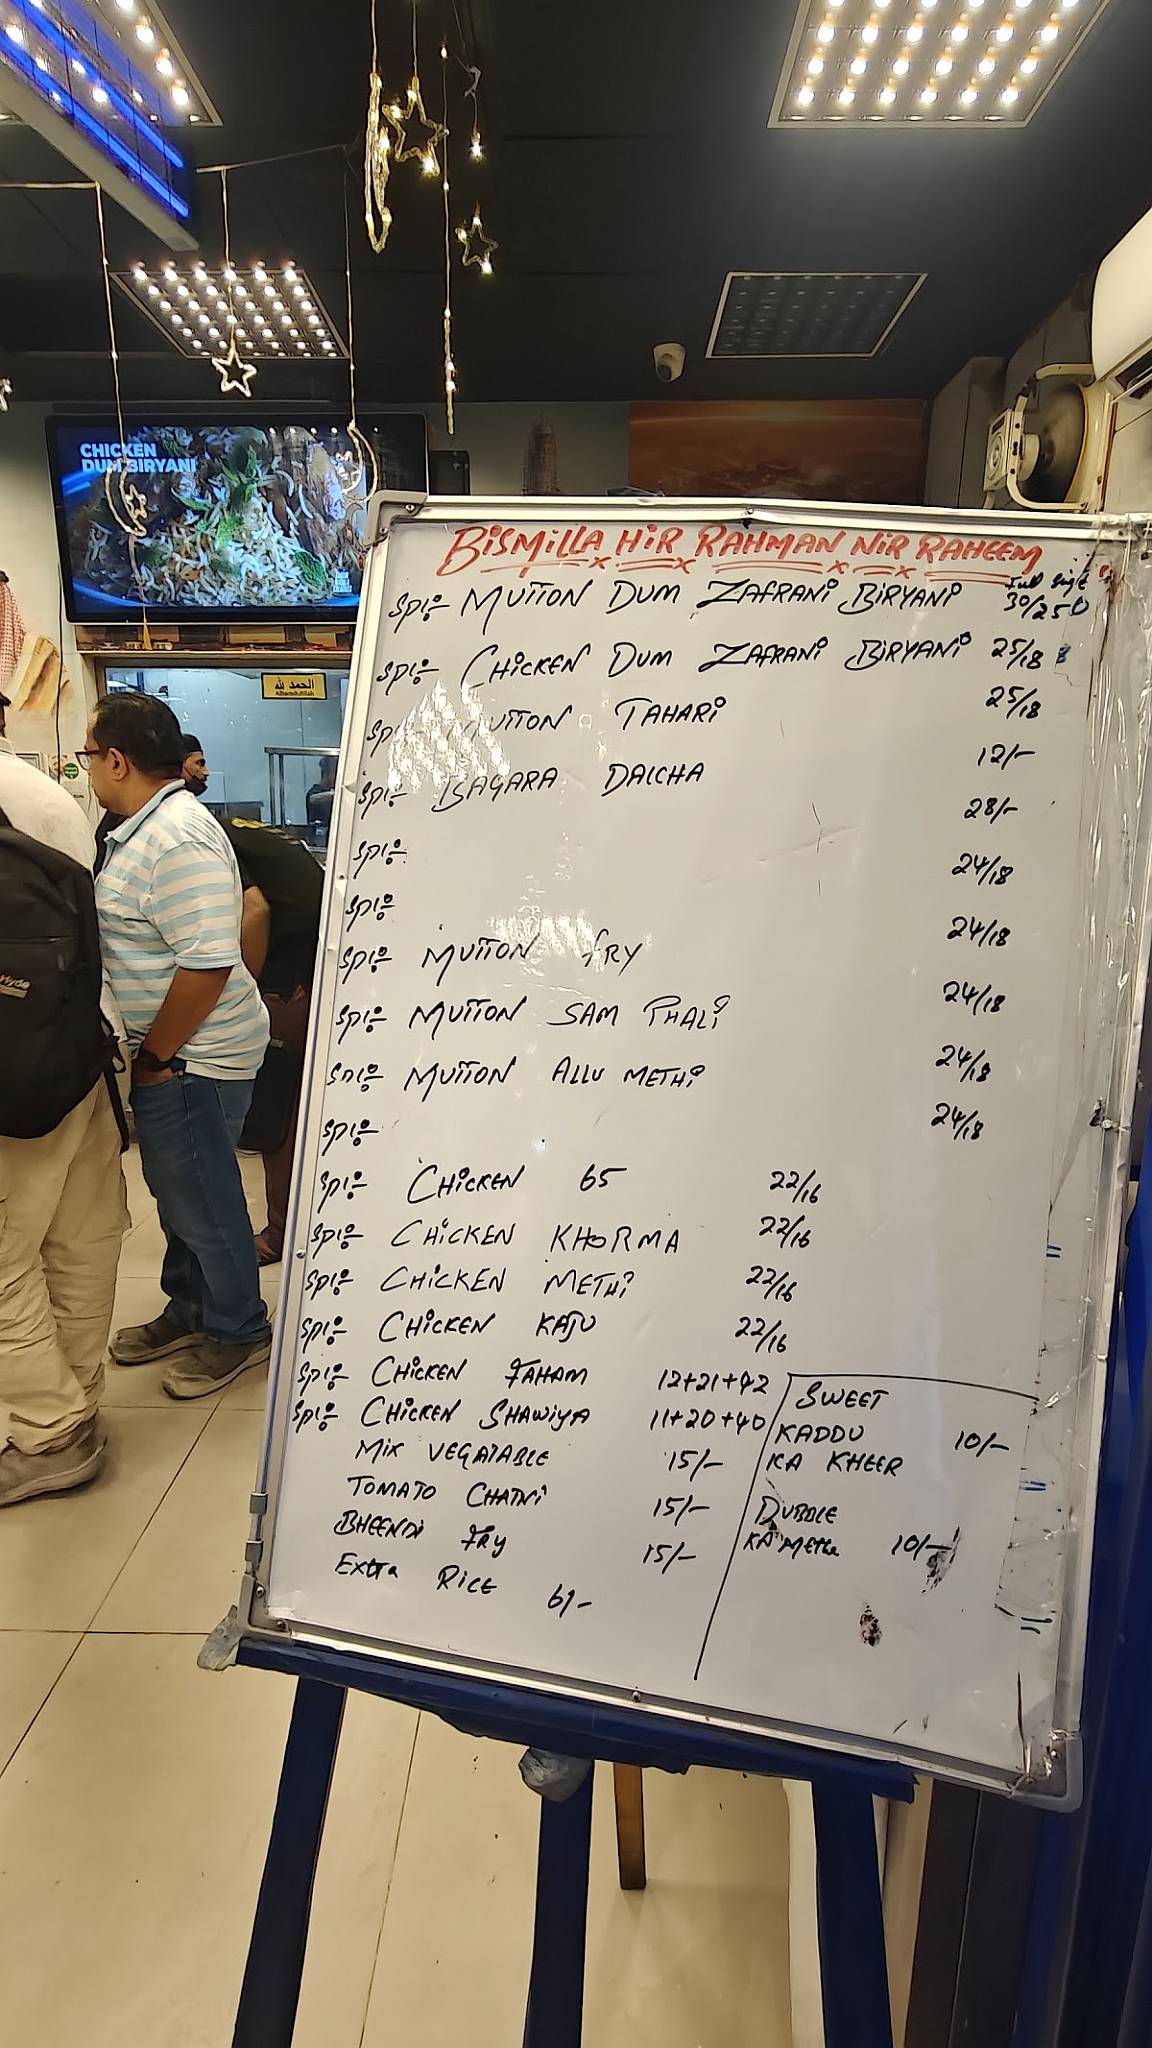 CHICKEN
DUM BIRYANI
الحمد لله
Alhamdulillah
BISMILLA HIR RAHMAN NIR RAHEEM
Full Single
Spl:- MUTTON DUM ZAFRANI BIRYANI 30/25
Spl:- CHICKEN DUM ZAFRANI BIRYANI 25/18
Spl:- MUTTON TAHARI 25/18
Spl:- BAGARA DALCHA 12/-
Spl:- 28/-
Spl:- 24/18
Spl:- MUTTON FRY 24/18
Spl:- MUTTON SAM PHALI 24/18
Spl:- MUTTON ALLU METHI 24/18
Spl:- 24/18
Spl:- CHICKEN 65 22/16
Spl:- CHICKEN KHORMA 22/16
Spl:- CHICKEN METHI 22/16
Spl:- CHICKEN KAJU 22/16
Spl:- CHICKEN FAHAM 12+21+42
Spl:- CHICKEN SHAWIYA 11+20+40
MIX VEGATABLE 15/-
TOMATO CHATNI 15/-
BHEENDI FRY 15/-
Extra RICE 6/-
SWEET
KADDU
KA KHEER 10/-
DUBBLE
KA METHA 10/-